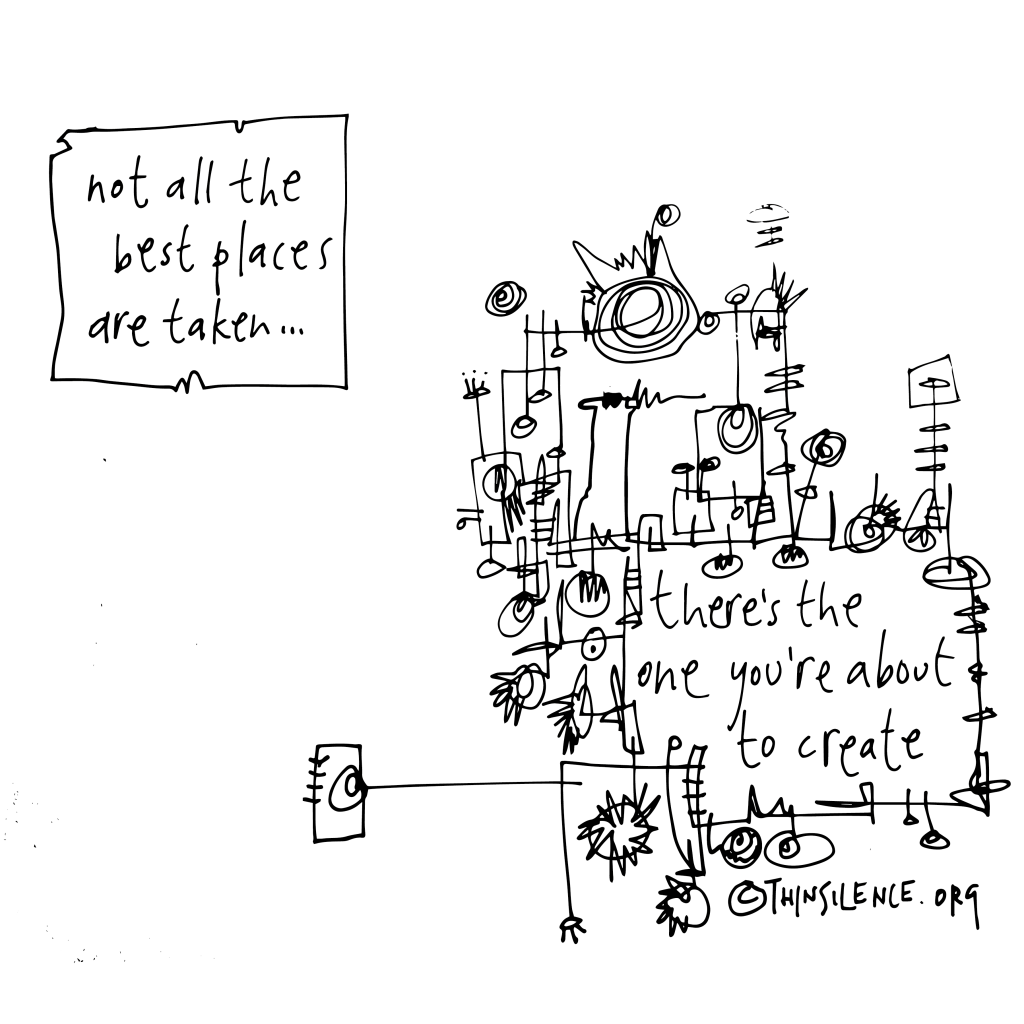 not all the
best places
are taken...
there's the
one you're about
to create
©THINSILENCE.ORG